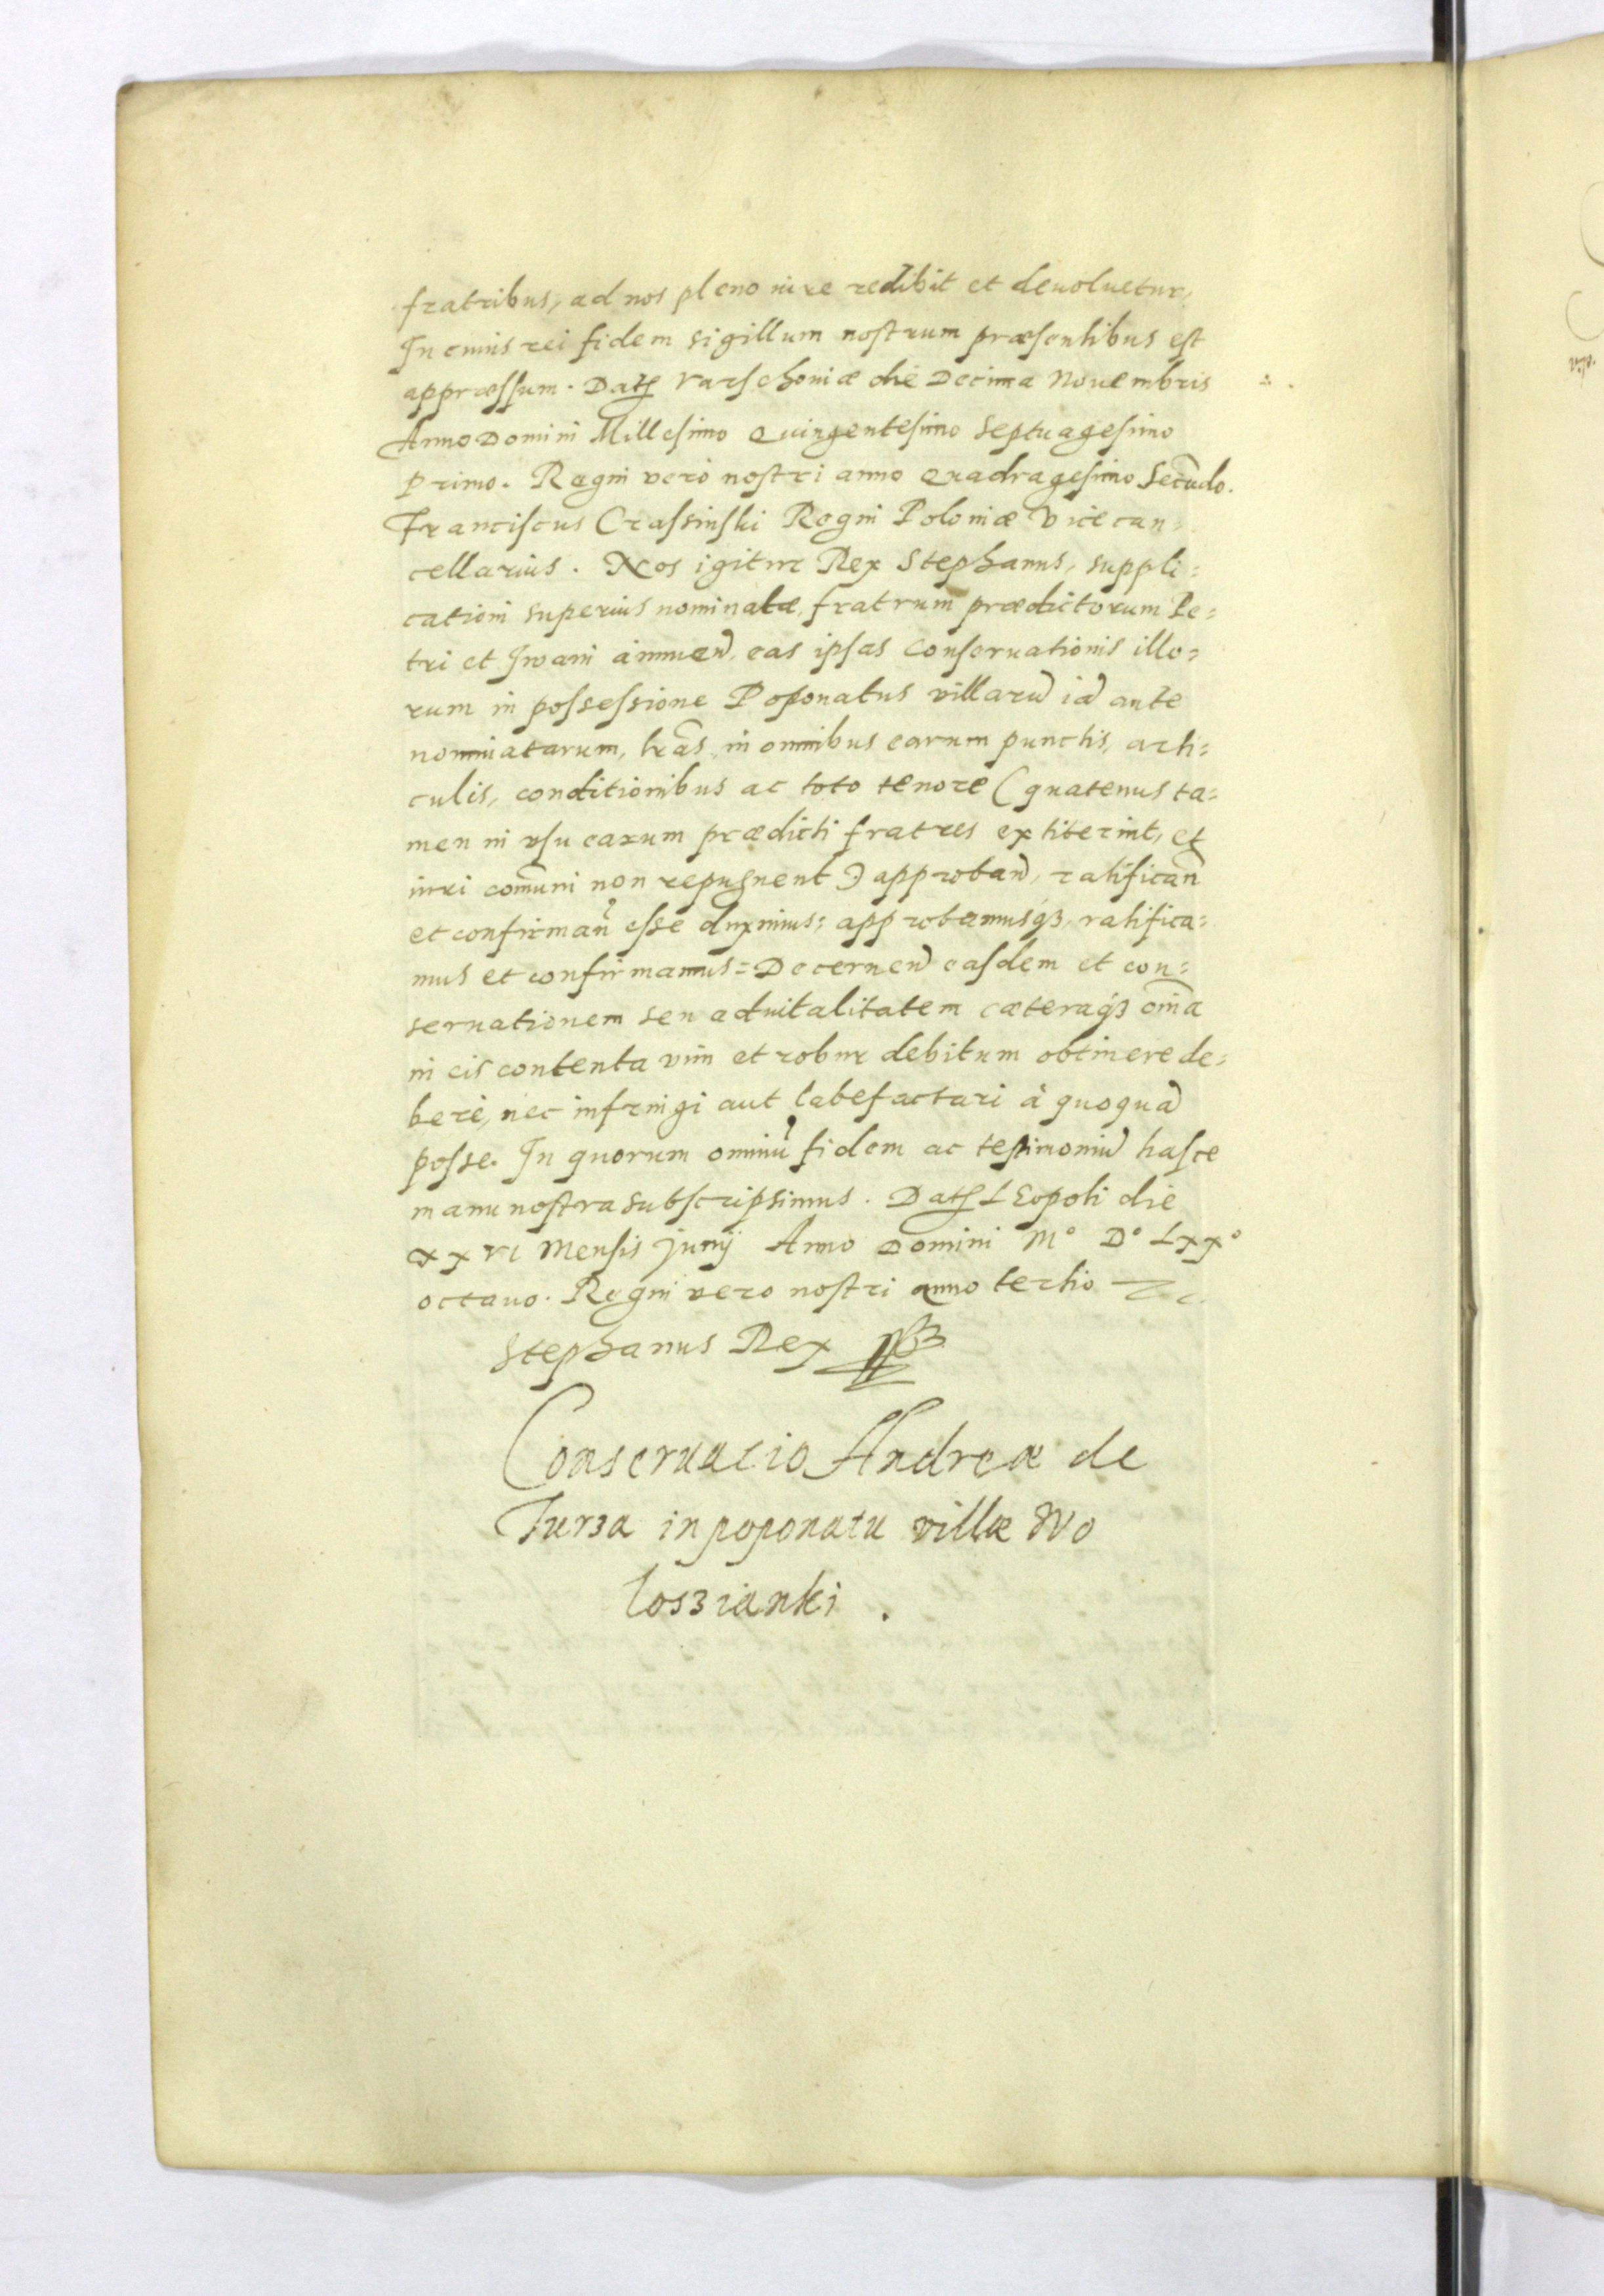 fratribus, ad nos pleno iure redibit et deuoluetur,
In cuius rei fidem sigillum nostrum præsentibus est
appræssum. Dat̃ Varschoniæ die Decima Nouembris
Anno Domini Millesimo Quingentesimo Septuagesimo
primo. Regni vero nostri anno Quadragesimo Secũdo.
Franciscus Crassinski Regni Poloniæ Vicecan=
cellarius. Nos igitur Rex Stephanus, suppli=
cationi superius nominatæ, fratrum prædictorum Pe=
tri et Iwani annuen̄, eas ipsas Conseruationis illo=
rum in possessione Poponatus villarū iā ante
nominatarum, lr̃as, in omnibus earum punctis, arti=
culis, conditionibus ac toto tenore (quatenus ta=
men in vsu earum prædicti fratres extiterint, et
iuri com̃uni non repugnent) approban̄, ratifican̄
et confirman̄ esse duximus: approbamusqʒ, ratifica=
mus et confirmamus = Decernen̄ easdem et con=
seruationem seu aduitalitatem cæteraqʒ om̃a
in eis contenta vim et robur debitum obtinere de=
bere, nec infringi aut labefactari à quoquā
posse. In quorum omniũ fidem ac testimoniū hasce
manu nostra subscripsimus. Dat̃ LEopoli die
xxvi Mensis Junij Anno Domini M° D° Lxx°
octauo. Regni vero nostri anno tertio
Stephanus Rex
Conseruacio Andreæ de
Turza in poponatu villæ Wo
loszianki.